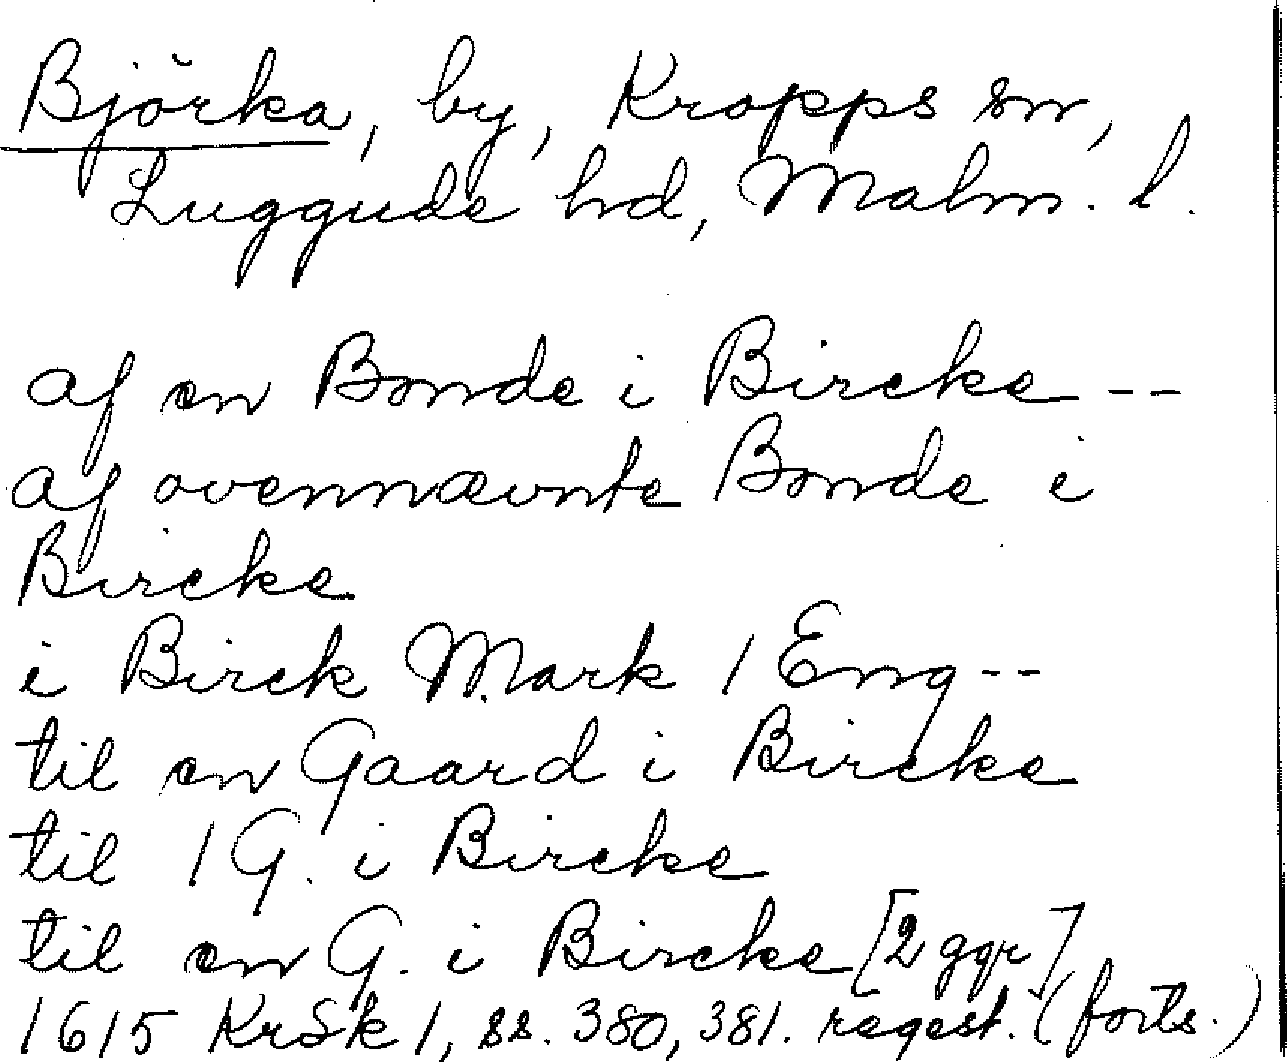 Björka, by, Kropps sn,
Luggude hd, Malm. l.
af en Bonde i Bircke --
af ovennævnte Bonde i
Bircke
i Birck Mark 1 Eng --
til en Gaard i Bircke
til 1 G. i Bircke
til en G. i Bircke [2 ggr]
1615 KrSk 1, ss. 380, 381. regest. (forts.)